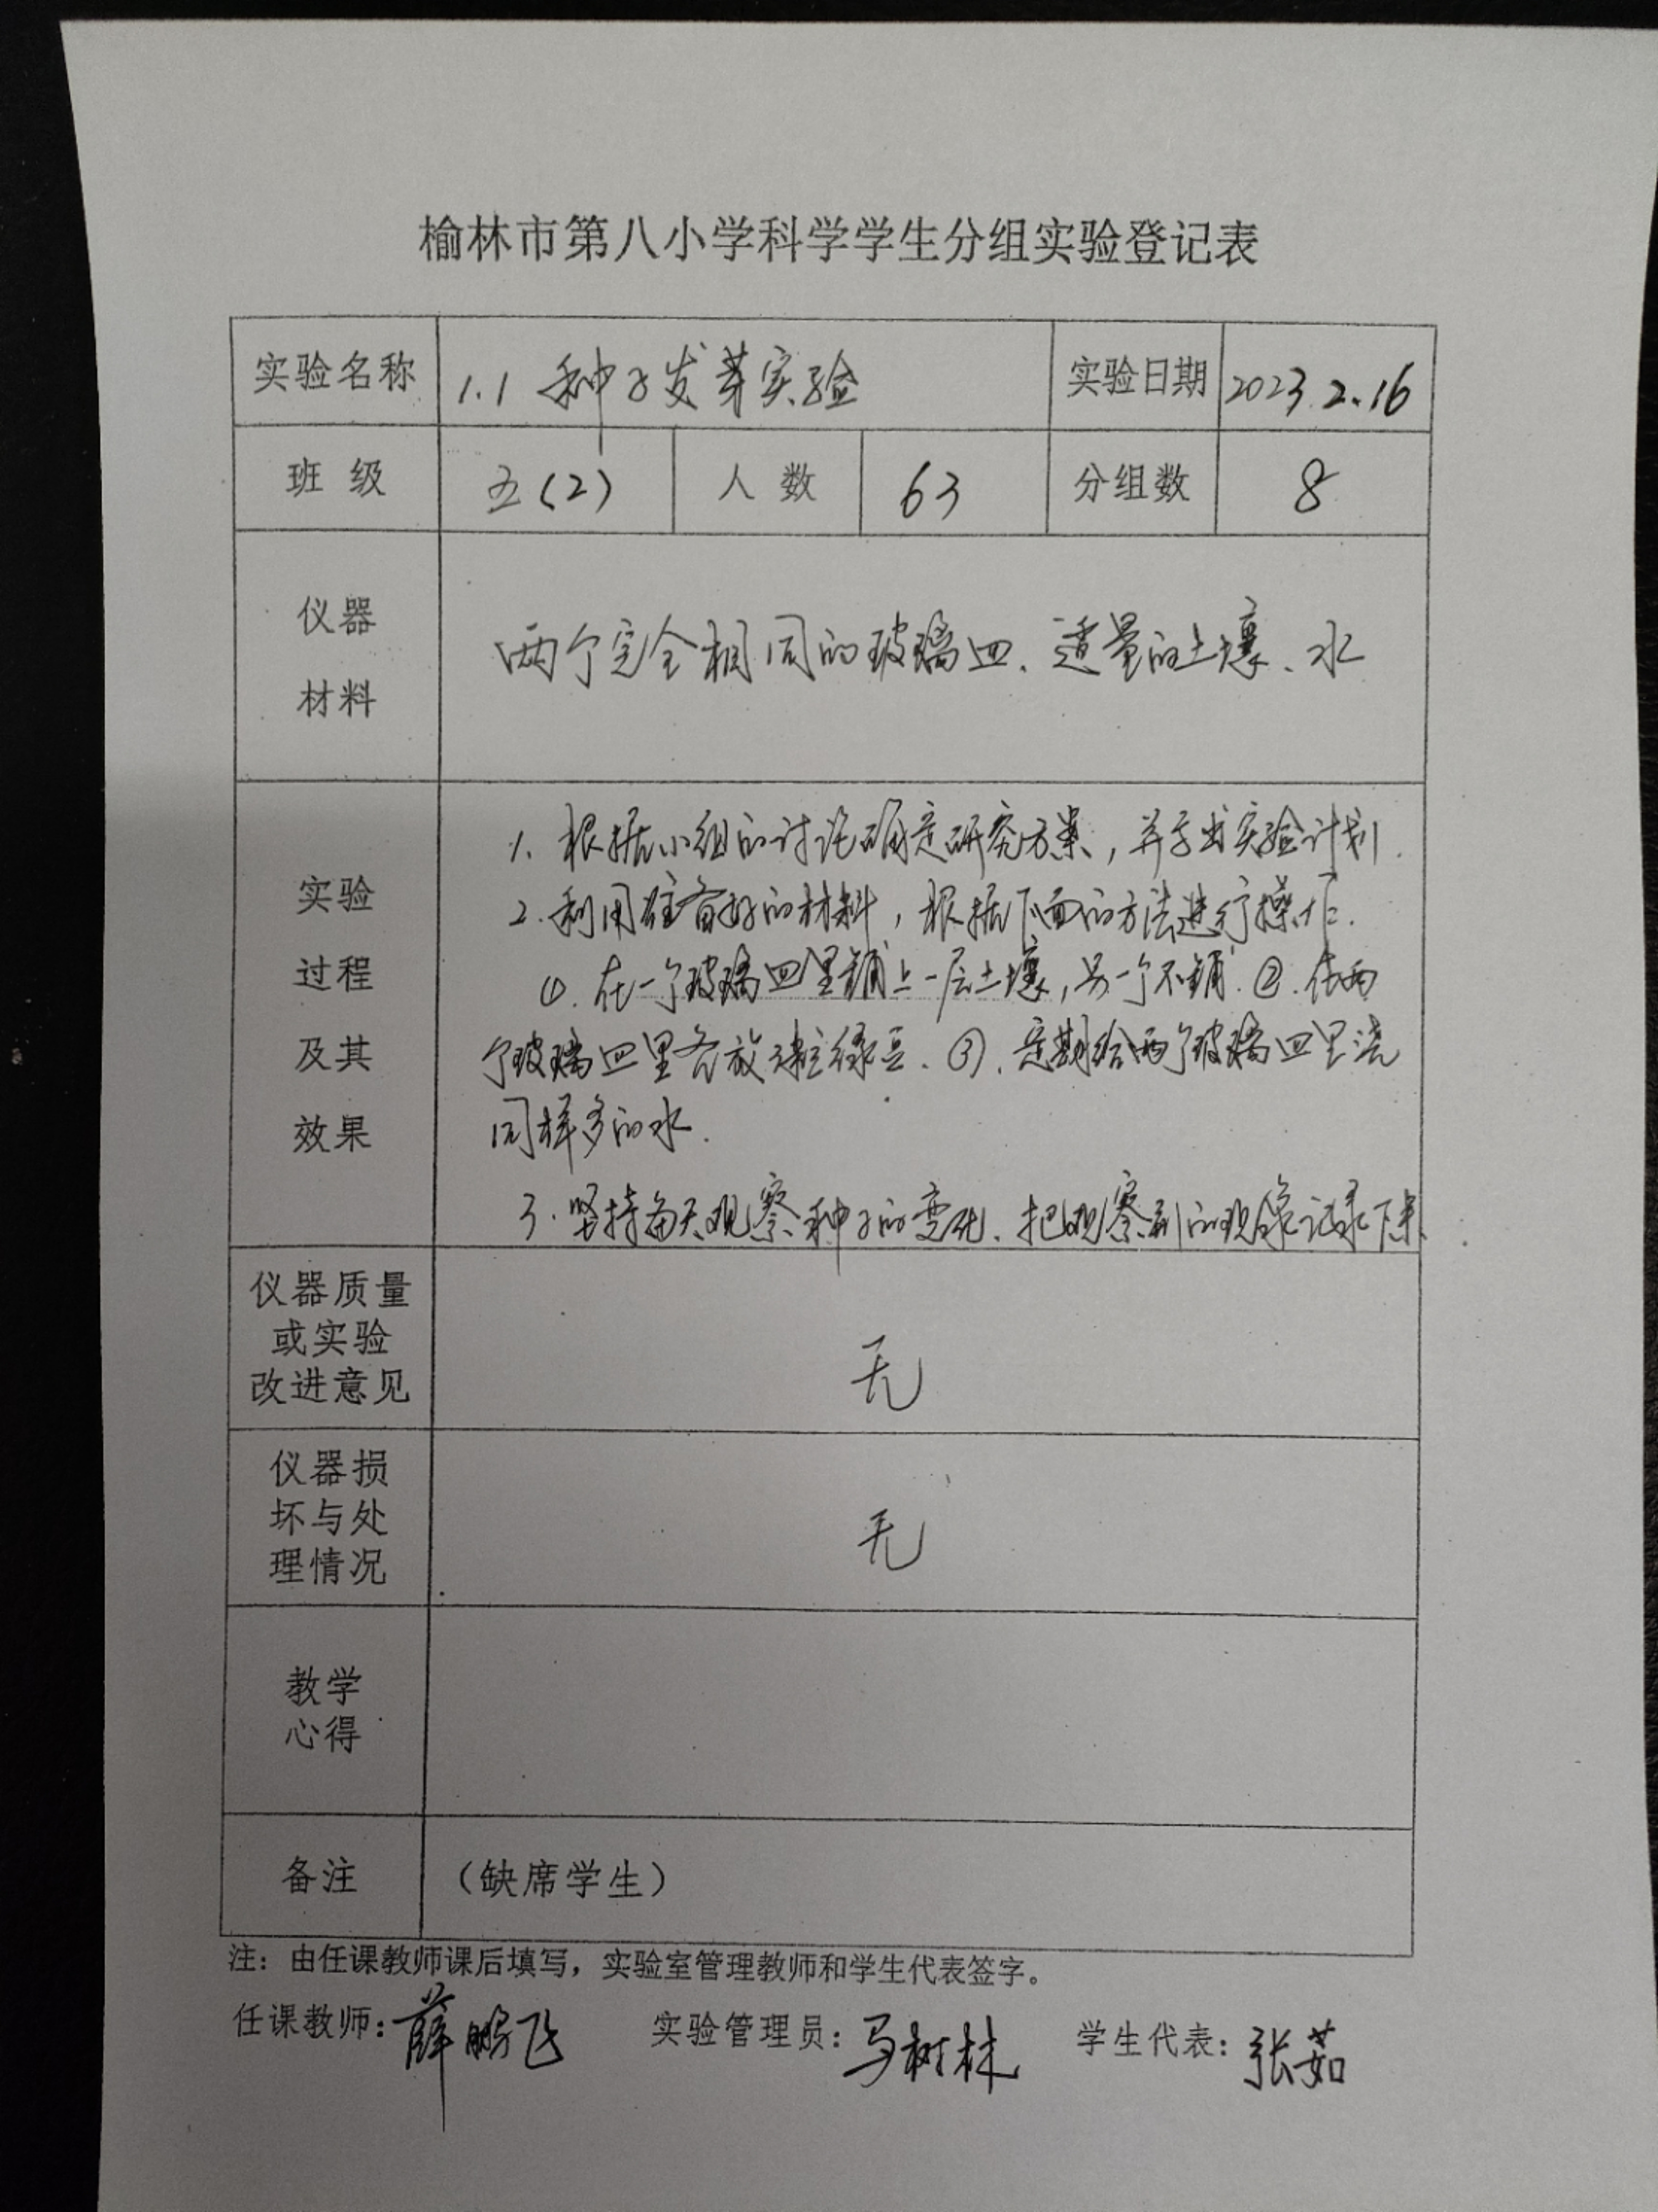 榆林市第八小学科学学生分组实验登记表
实验名称 1.1 种子发芽实验 实验日期 2023.2.16
班级 五(2) 人数 63 分组数 8
仪器
材料
两个完全相同的玻璃皿、适量的土壤、水
实验
过程
及其
效果
1. 根据小组的讨论确定研究方案，并写出实验计划.
2. 利用准备好的材料，根据下面的方法进行操作.
①. 在一个玻璃皿里铺上一层土壤，另一个不铺. ②. 在两
个玻璃皿里各放 粒绿豆. ③. 定期给两个玻璃皿里浇
同样多的水.
3. 坚持每天观察种子的变化. 把观察到的现象记录下来.
仪器质量
或实验
改进意见
无
仪器损
坏与处
理情况
无
教学
心得
备注 （缺席学生）
注：由任课教师课后填写，实验室管理教师和学生代表签字。
任课教师：薛鹏飞 实验管理员：马树林 学生代表：张茹